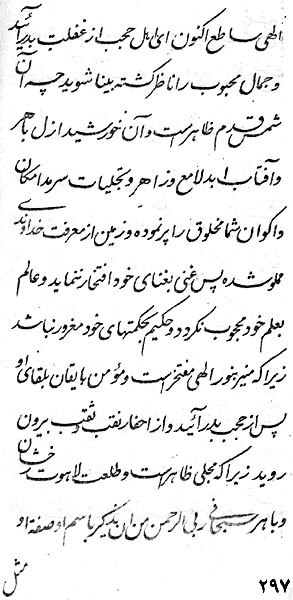 الهی ساطع اکنون ای اهل حجب از غفلت بدر آئید
و جمال محبوب را ناظر گشته بینا شوید چه آن
شمس قدم ظاهرست و آن خورشید ازل باهر
و آفتاب ابد لامع و زاهر و تجلیات سرمد امکان
و اکوان شما مخلوق را پر نموده و زمین از معرفت خداوندی
مملو شده پس غنی بغنای خود افتخار ننماید و عالم
بعلم خود محجوب نگردد و حکیم بحکمتهای خود مغرور نباشد
زیرا که منیر بنور الهی مفتخرست و مؤمن بایقان بلقای او
پس از حجب بدر آئید و از احفار نقب و ثقب بیرون
روید زیرا که مجلی ظاهرست و طلعت لاهوت رخشان
و باهر سبحان ربی الرحمن من ان یذکر باسم او صفة او
مثل
۲۹۷